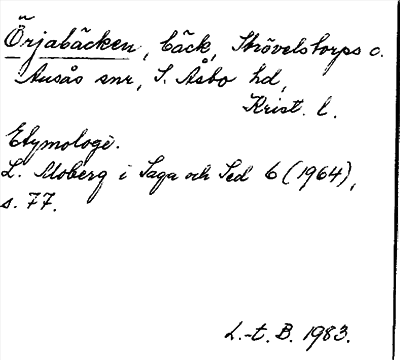 Örjabäcken, bäck, Strövelstorps o.
Ausås snr, S. Åsbo hd,
Krist. l.
Etymologi.
L. Moberg i Saga och Sed 6 (1964),
s. 77.
L.-t. B. 1983.